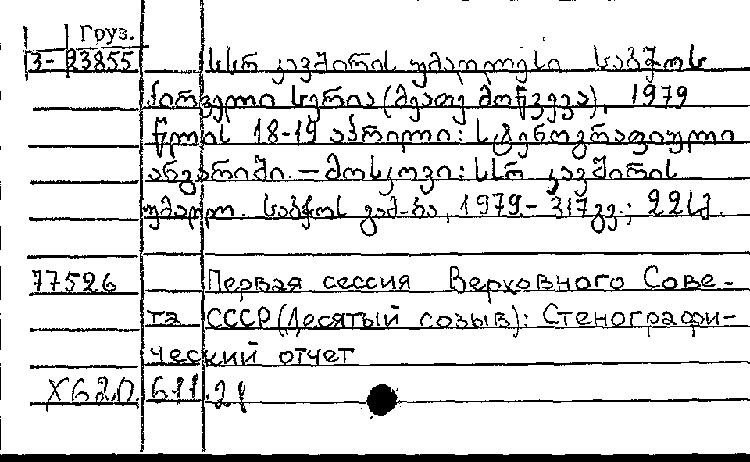 Груз.
3- 23855 სსრ კავშირის უმაღლესი საბჭოს
პირველი სესია (მეათე მოწვევა), 1979
წლის 18-19 აპრილი: სტენოგრაფიული
ანგარიში. — მოსკოვი: სსრ კავშირის
უმაღლ. საბჭოს გამ-ბა, 1979. - 317 გვ.; 22 სმ.
77526 Первая сессия Верховного Сове-
та СССР (Десятый созыв): Стенографи-
ческий отчет
X62.0 611.21